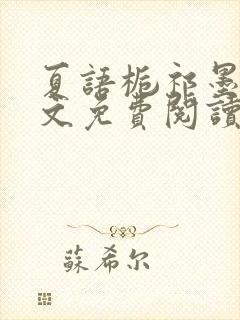 夏語栀祁墨
文免費閱讀
蘇希尔